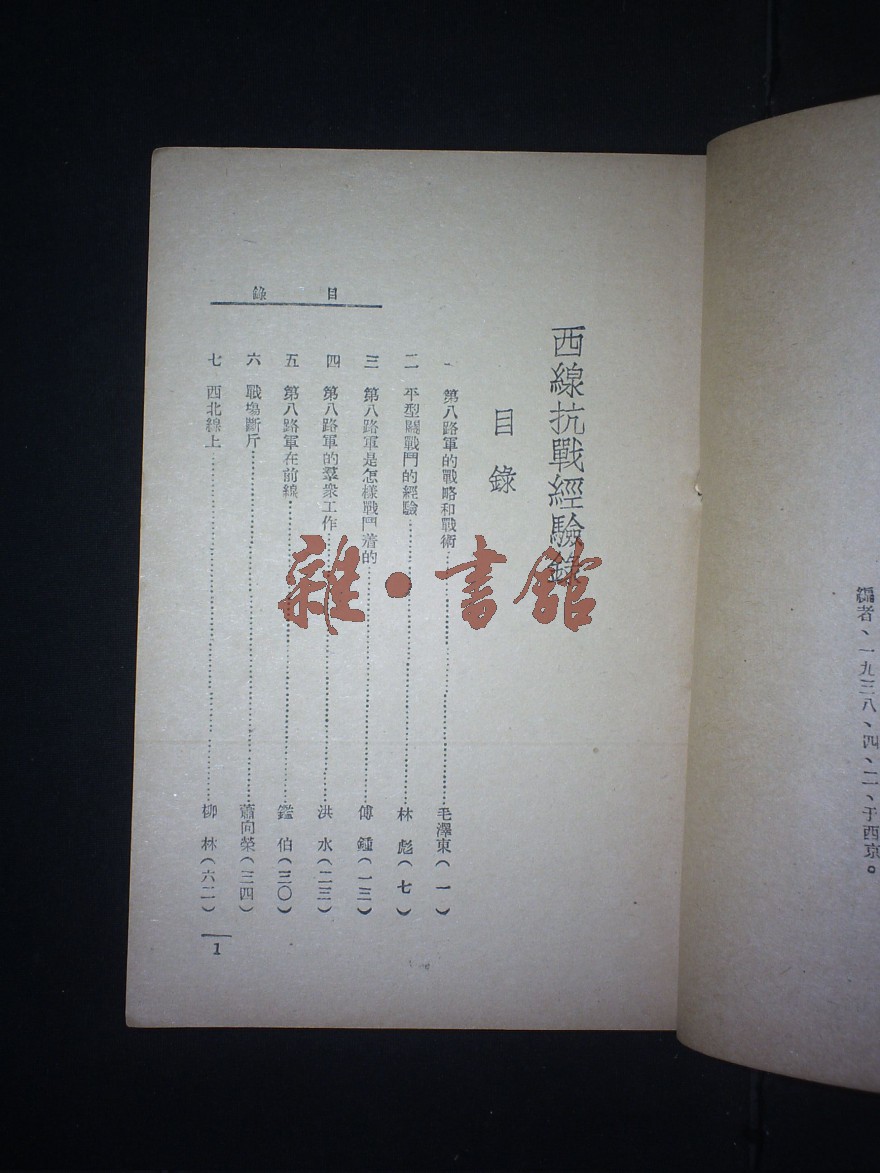 編者、一九三八、四、二、于西京。
西線抗戰經驗錄
目錄
目錄
一 第八路軍的戰略和戰術……毛澤東(一)
二 平型關戰鬥的經驗……林彪(七)
三 第八路軍是怎樣戰鬥着的……傅鍾(一三)
四 第八路軍的羣衆工作……洪水(二三)
五 第八路軍在前線……鑑伯(三〇)
六 戰塲斷斤……蕭向榮(三四)
七 西北線上……柳林(六二)
1
雜·書館